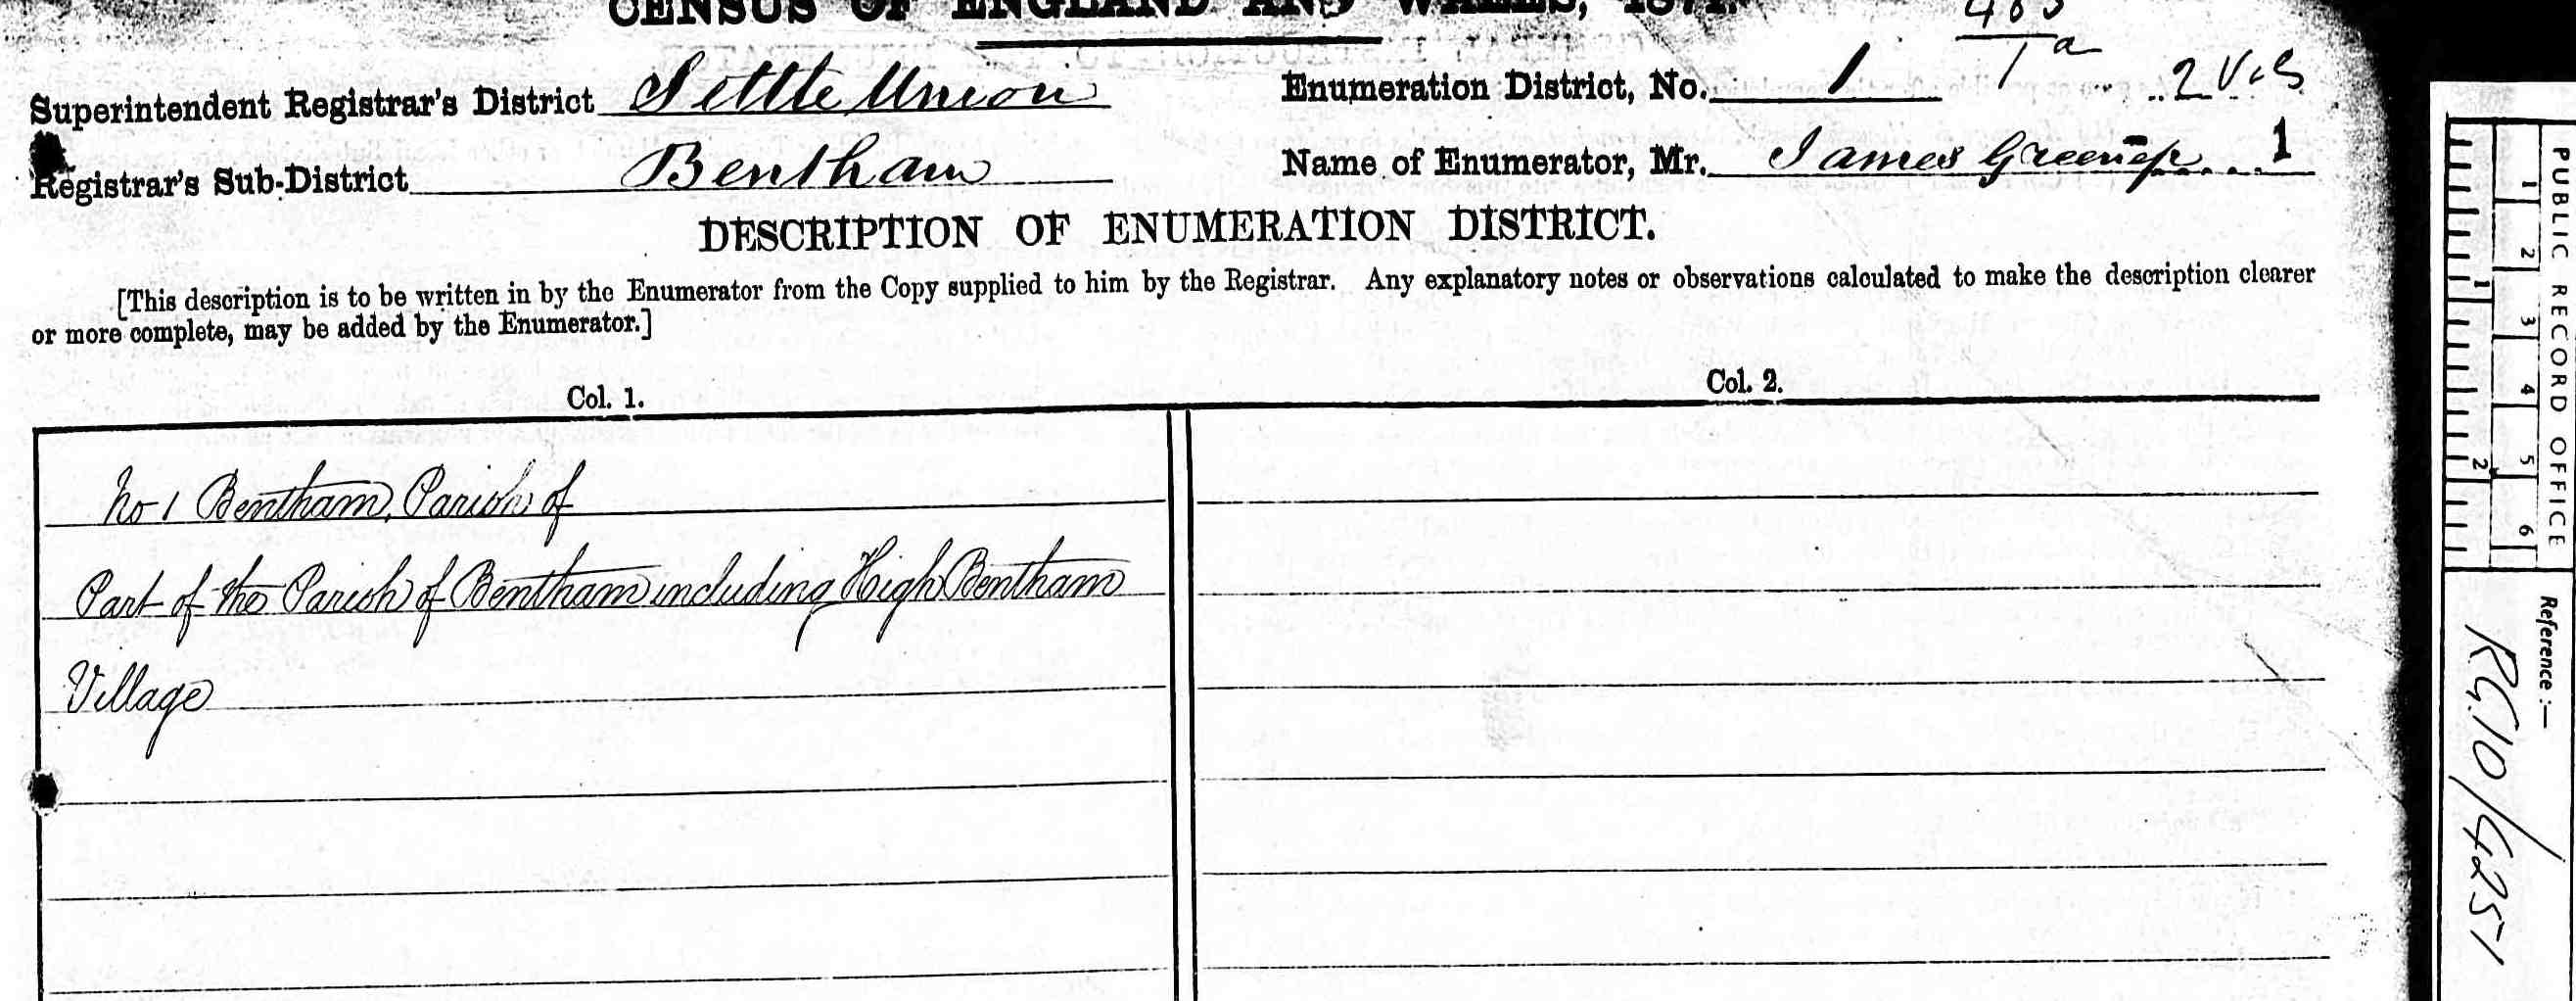 CENSUS OF ENGLAND AND WALES, 1871.
485
1a
2 Vols
Superintendent Registrar's District Settle Union
Enumeration District, No. 1
Registrar's Sub-District Bentham
Name of Enumerator, Mr. James Greenep
1
DESCRIPTION OF ENUMERATION DISTRICT.
[This description is to be written in by the Enumerator from the Copy supplied to him by the Registrar. Any explanatory notes or observations calculated to make the description clearer
or more complete, may be added by the Enumerator.]
Col. 1.
Col. 2.
No 1 Bentham, Parish of
Part of the Parish of Bentham including High Bentham
Village
PUBLIC RECORD OFFICE
1 2 3 4 5 6
1 2
Reference :—
RG.10/4251